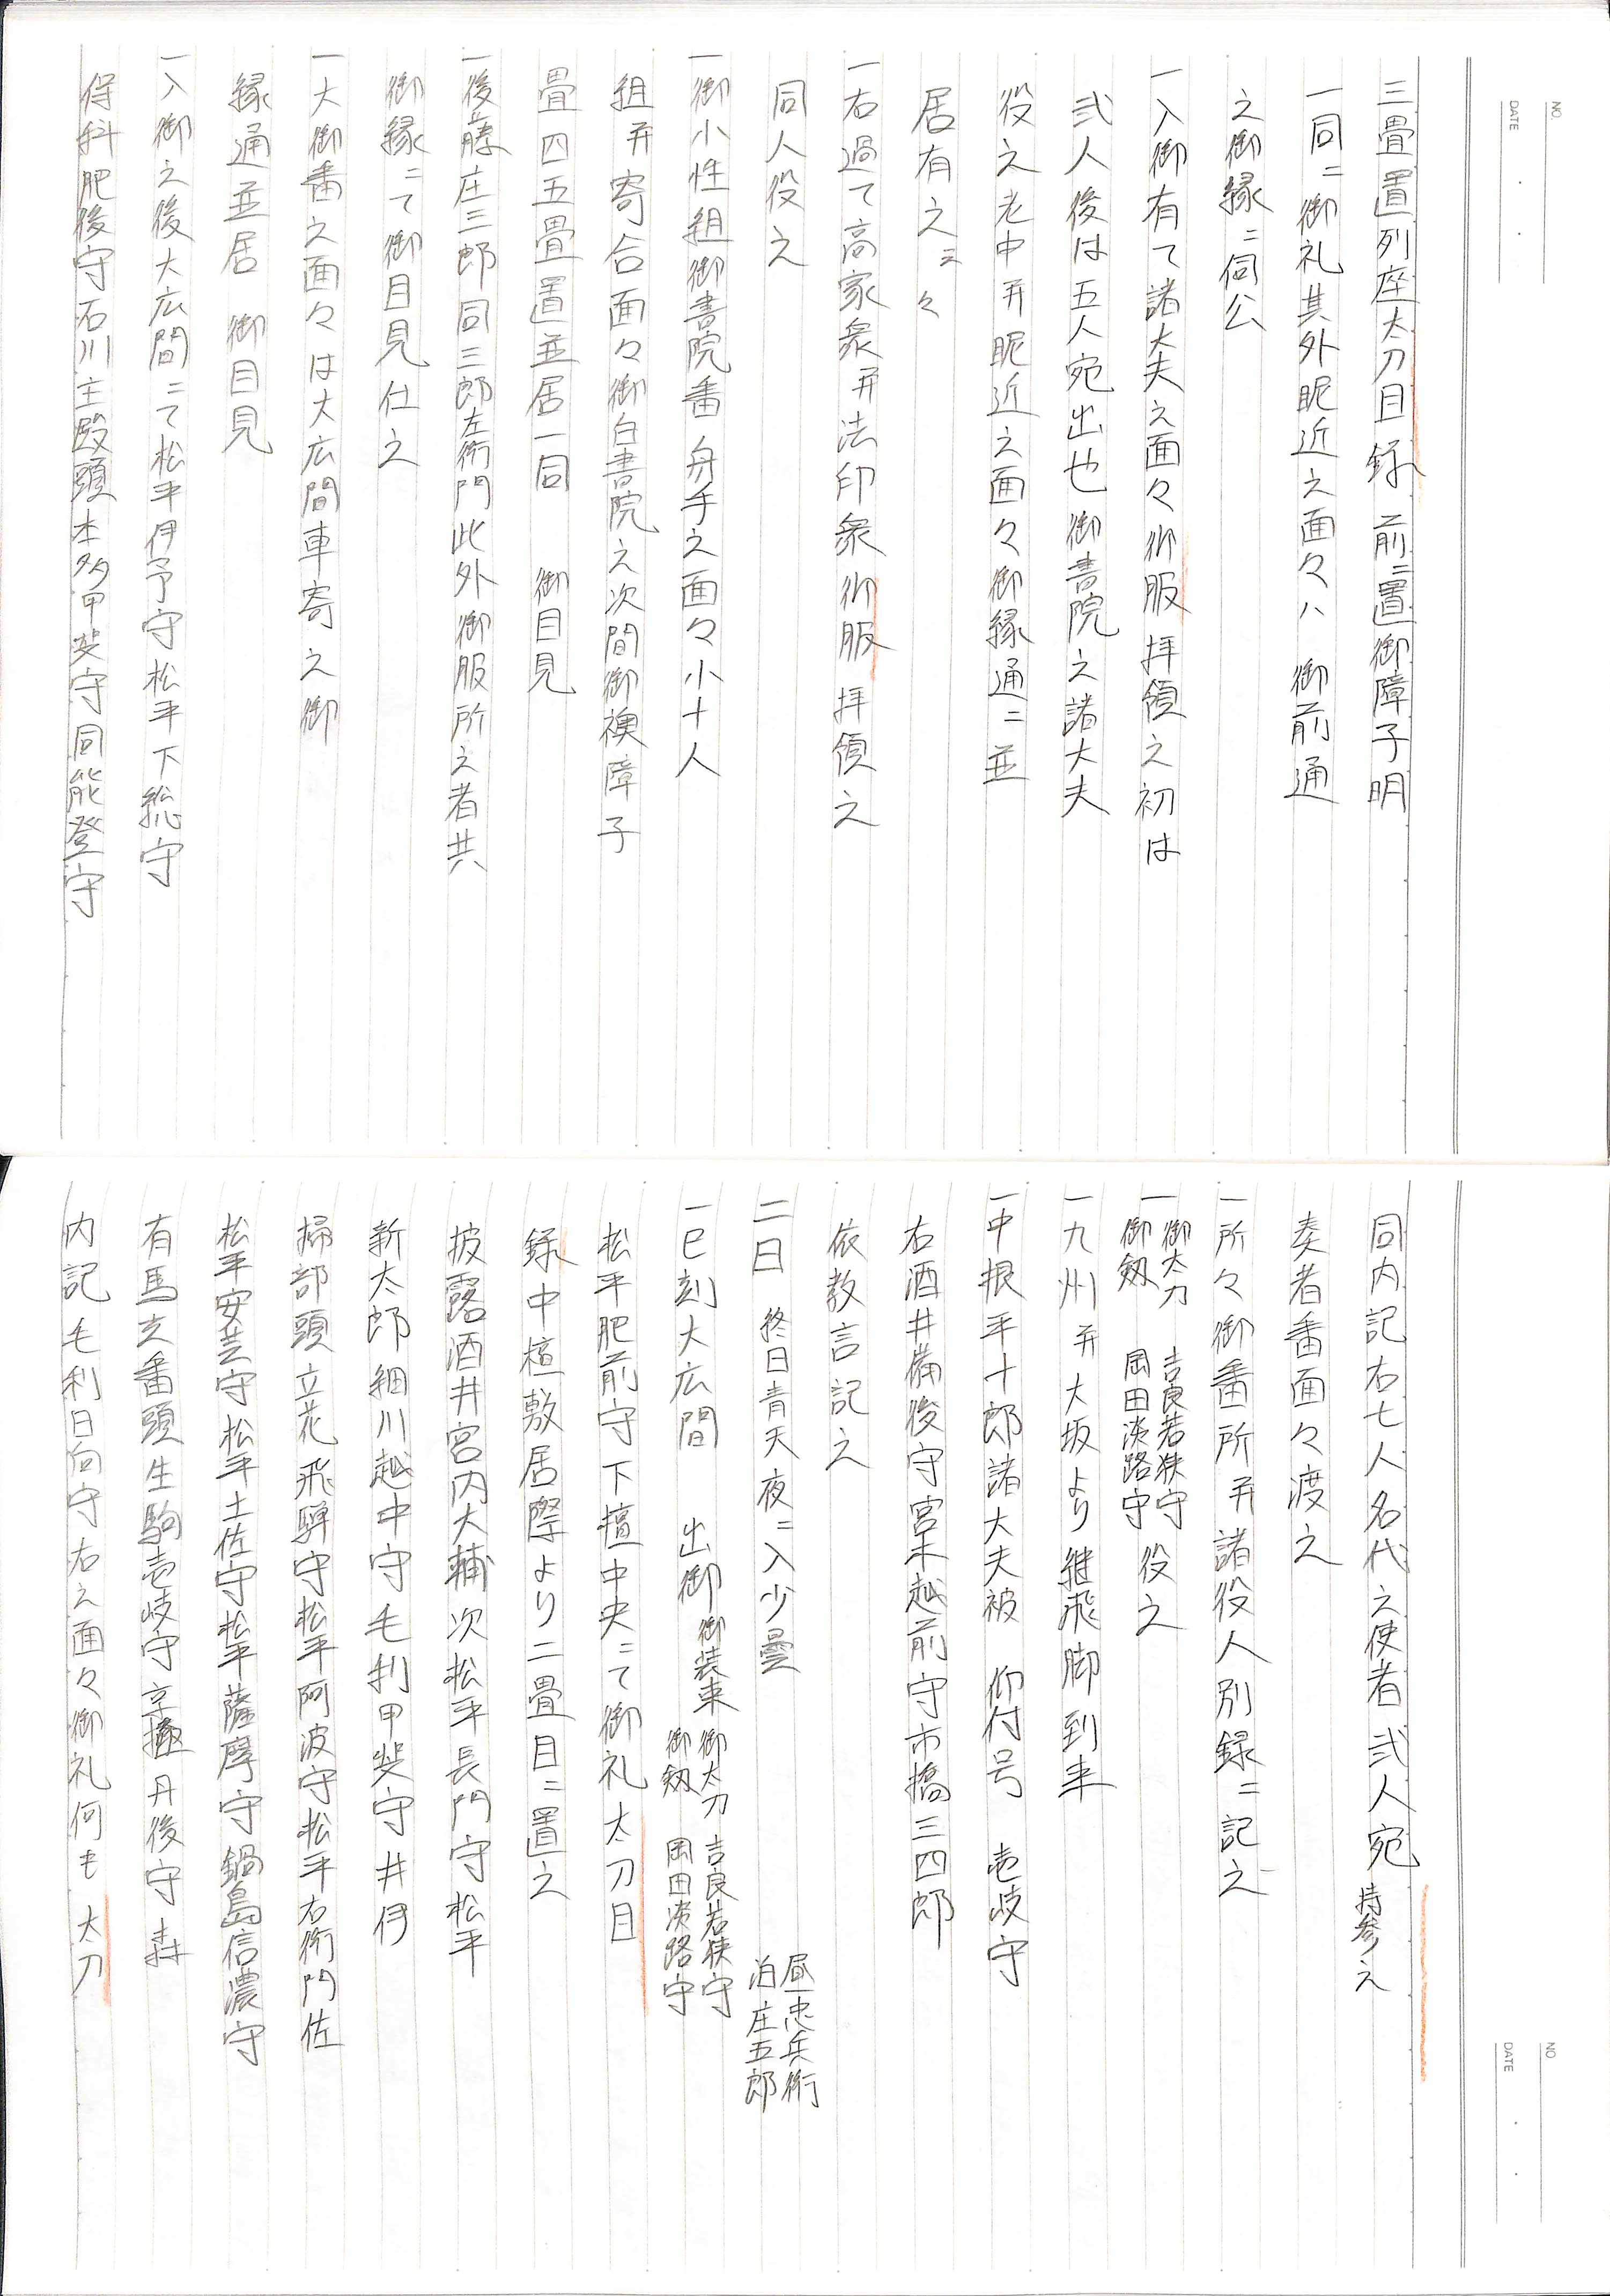 NO.
DATE
三畳置列座太刀目録 前ニ置御障子明
一同ニ御礼其外昵近之面々ハ 御前通
之御縁ニ伺公
一入御有て諸大夫之面々御服拝領之初は
弐人後は五人宛出也御書院之諸大夫
役之老中幷昵近之面々御縁通ニ並
居有之云々
一右過て高家衆幷法印衆御服拝領之
同人役之
一御小性組御書院番舟手之面々小十人
組幷寄合面々御白書院之次間御襖障子
畳四五畳置並居一同 御目見
一後藤庄三郎同三郎左衛門此外御服所之者共
御縁ニて御目見仕之
一大御番之面々は大広間車寄之御
縁通並居 御目見
一入御之後大広間ニて松平伊予守松平下総守
保科肥後守石川主殿頭本多甲斐守同能登守
NO
DATE
同内記右七人名代之使者弐人宛持参之
奏者番面々渡之
一所々御番所幷諸役人別録ニ記之
一御太刀 吉良若狭守
御剱 岡田淡路守 役之
一九州幷大坂より継飛脚到来
一中根平十郎諸大夫被 仰付号 壱岐守
右酒井備後守宮木越前守市橋三四郎
依教言記之
二日 終日青天夜ニ入少曇 昼忠兵衛
泊庄五郎
一巳刻大広間 出御 御装束 御太刀 吉良若狭守
御剱 岡田淡路守
松平肥前守下檀中央ニて御礼太刀目
録中檀敷居際より二畳目ニ置之
披露酒井宮内大輔次松平長門守松平
新太郎細川越中守毛利甲斐守井伊
掃部頭立花飛騨守松平阿波守松平右衛門佐
松平安芸守松平土佐守松平薩摩守鍋島信濃守
有馬玄番頭生駒壱岐守京極丹後守森
内記毛利日向守右之面々御礼何も太刀